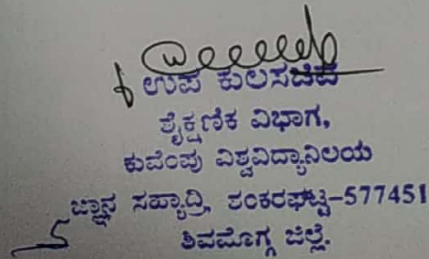 ಉಪ ಕುಲಸಚಿವ
ಶೈಕ್ಷಣಿಕ ವಿಭಾಗ,
ಕುವೆಂಪು ವಿಶ್ವವಿದ್ಯಾನಿಲಯ
ಜ್ಞಾನ ಸಹ್ಯಾದ್ರಿ, ಶಂಕರಘಟ್ಟ-577451
ಶಿವಮೊಗ್ಗ ಜಿಲ್ಲೆ.